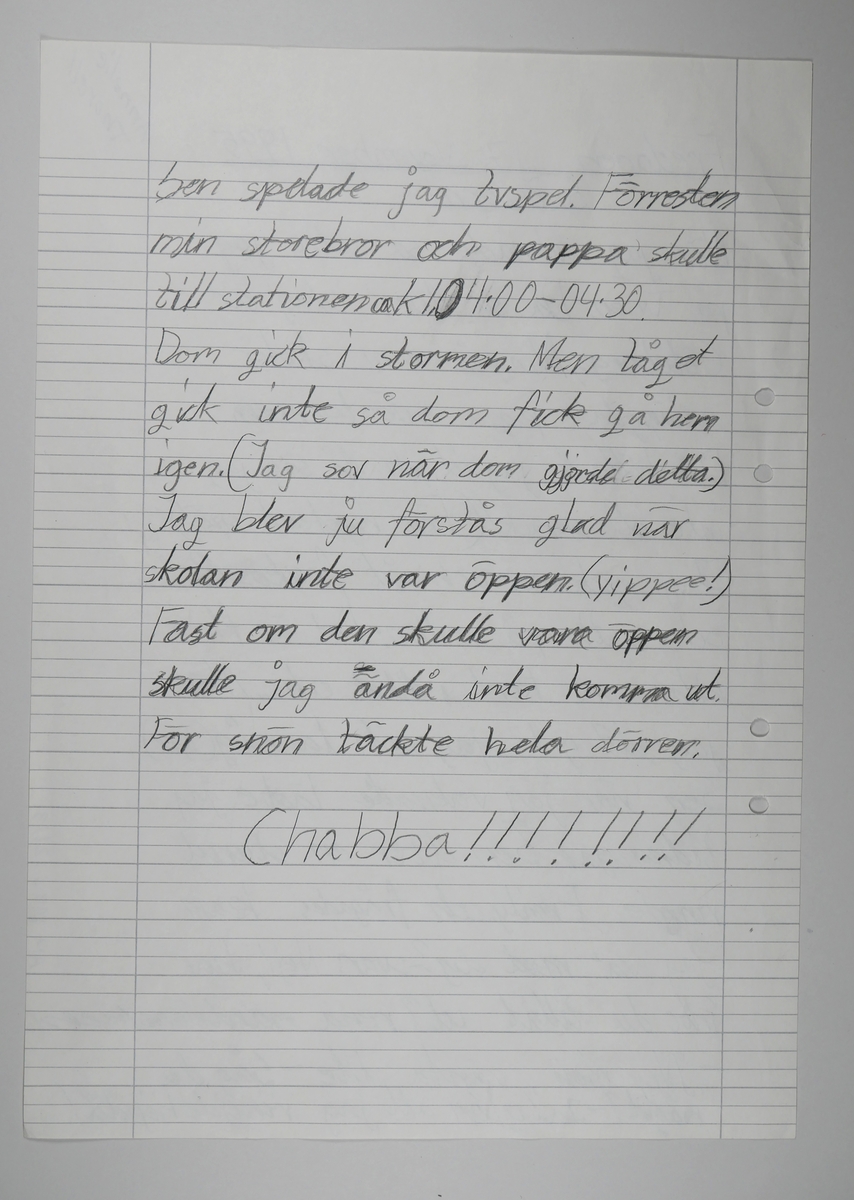 sen spelade jag tvspel. Förresten
min storebror och pappa skulle
till stationen ca kl. 04.00-04.30.
Dom gick i stormen. Men tåget
gick inte så dom fick gå hem
igen. (Jag sov när dom gjorde detta.)
Jag blev ju förstås glad när
skolan inte var öppen. (yippee!)
Fast om den skulle vara öppen
skulle jag ändå inte komma ut.
För snön täckte hela dörren.
Chabba!!!!!!!!!